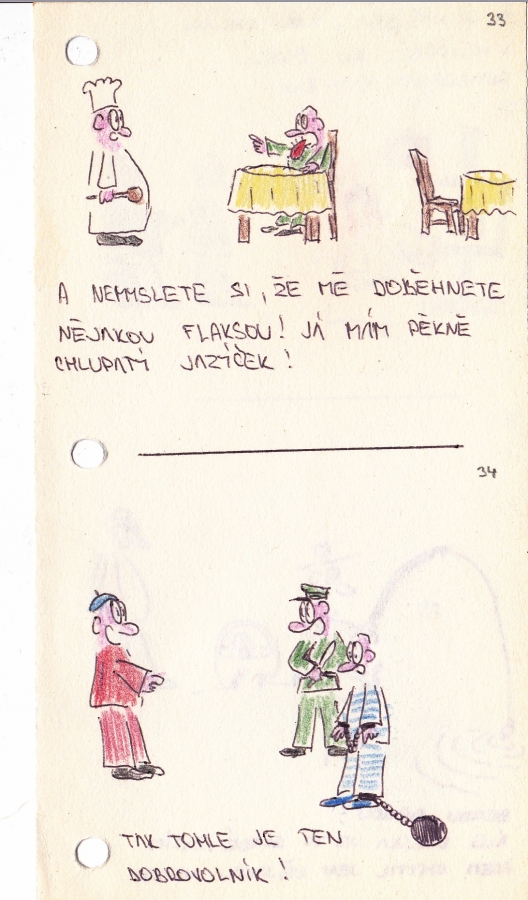 33
A NEMYSLETE SI, ŽE MĚ DOBĚHNETE
NĚJAKOU FLAKSOU! JÁ MÁM PĚKNĚ
CHLUPATÝ JAZÝČEK!
34
TAK TOHLE JE TEN
DOBROVOLNÍK!